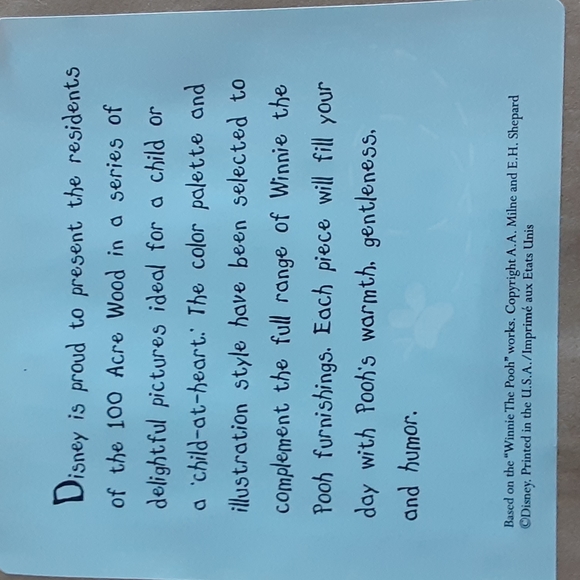 Disney is proud to present the residents
of the 100 Acre Wood in a series of
delightful pictures ideal for a child or
a 'child-at-heart.' The color palette and
illustration style have been selected to
complement the full range of Winnie the
Pooh furnishings. Each piece will fill your
day with Pooh's warmth, gentleness,
and humor.
Based on the "Winnie The Pooh" works. Copyright A.A. Milne and E.H. Shepard
©Disney. Printed in the U.S.A./Imprimé aux Etats Unis